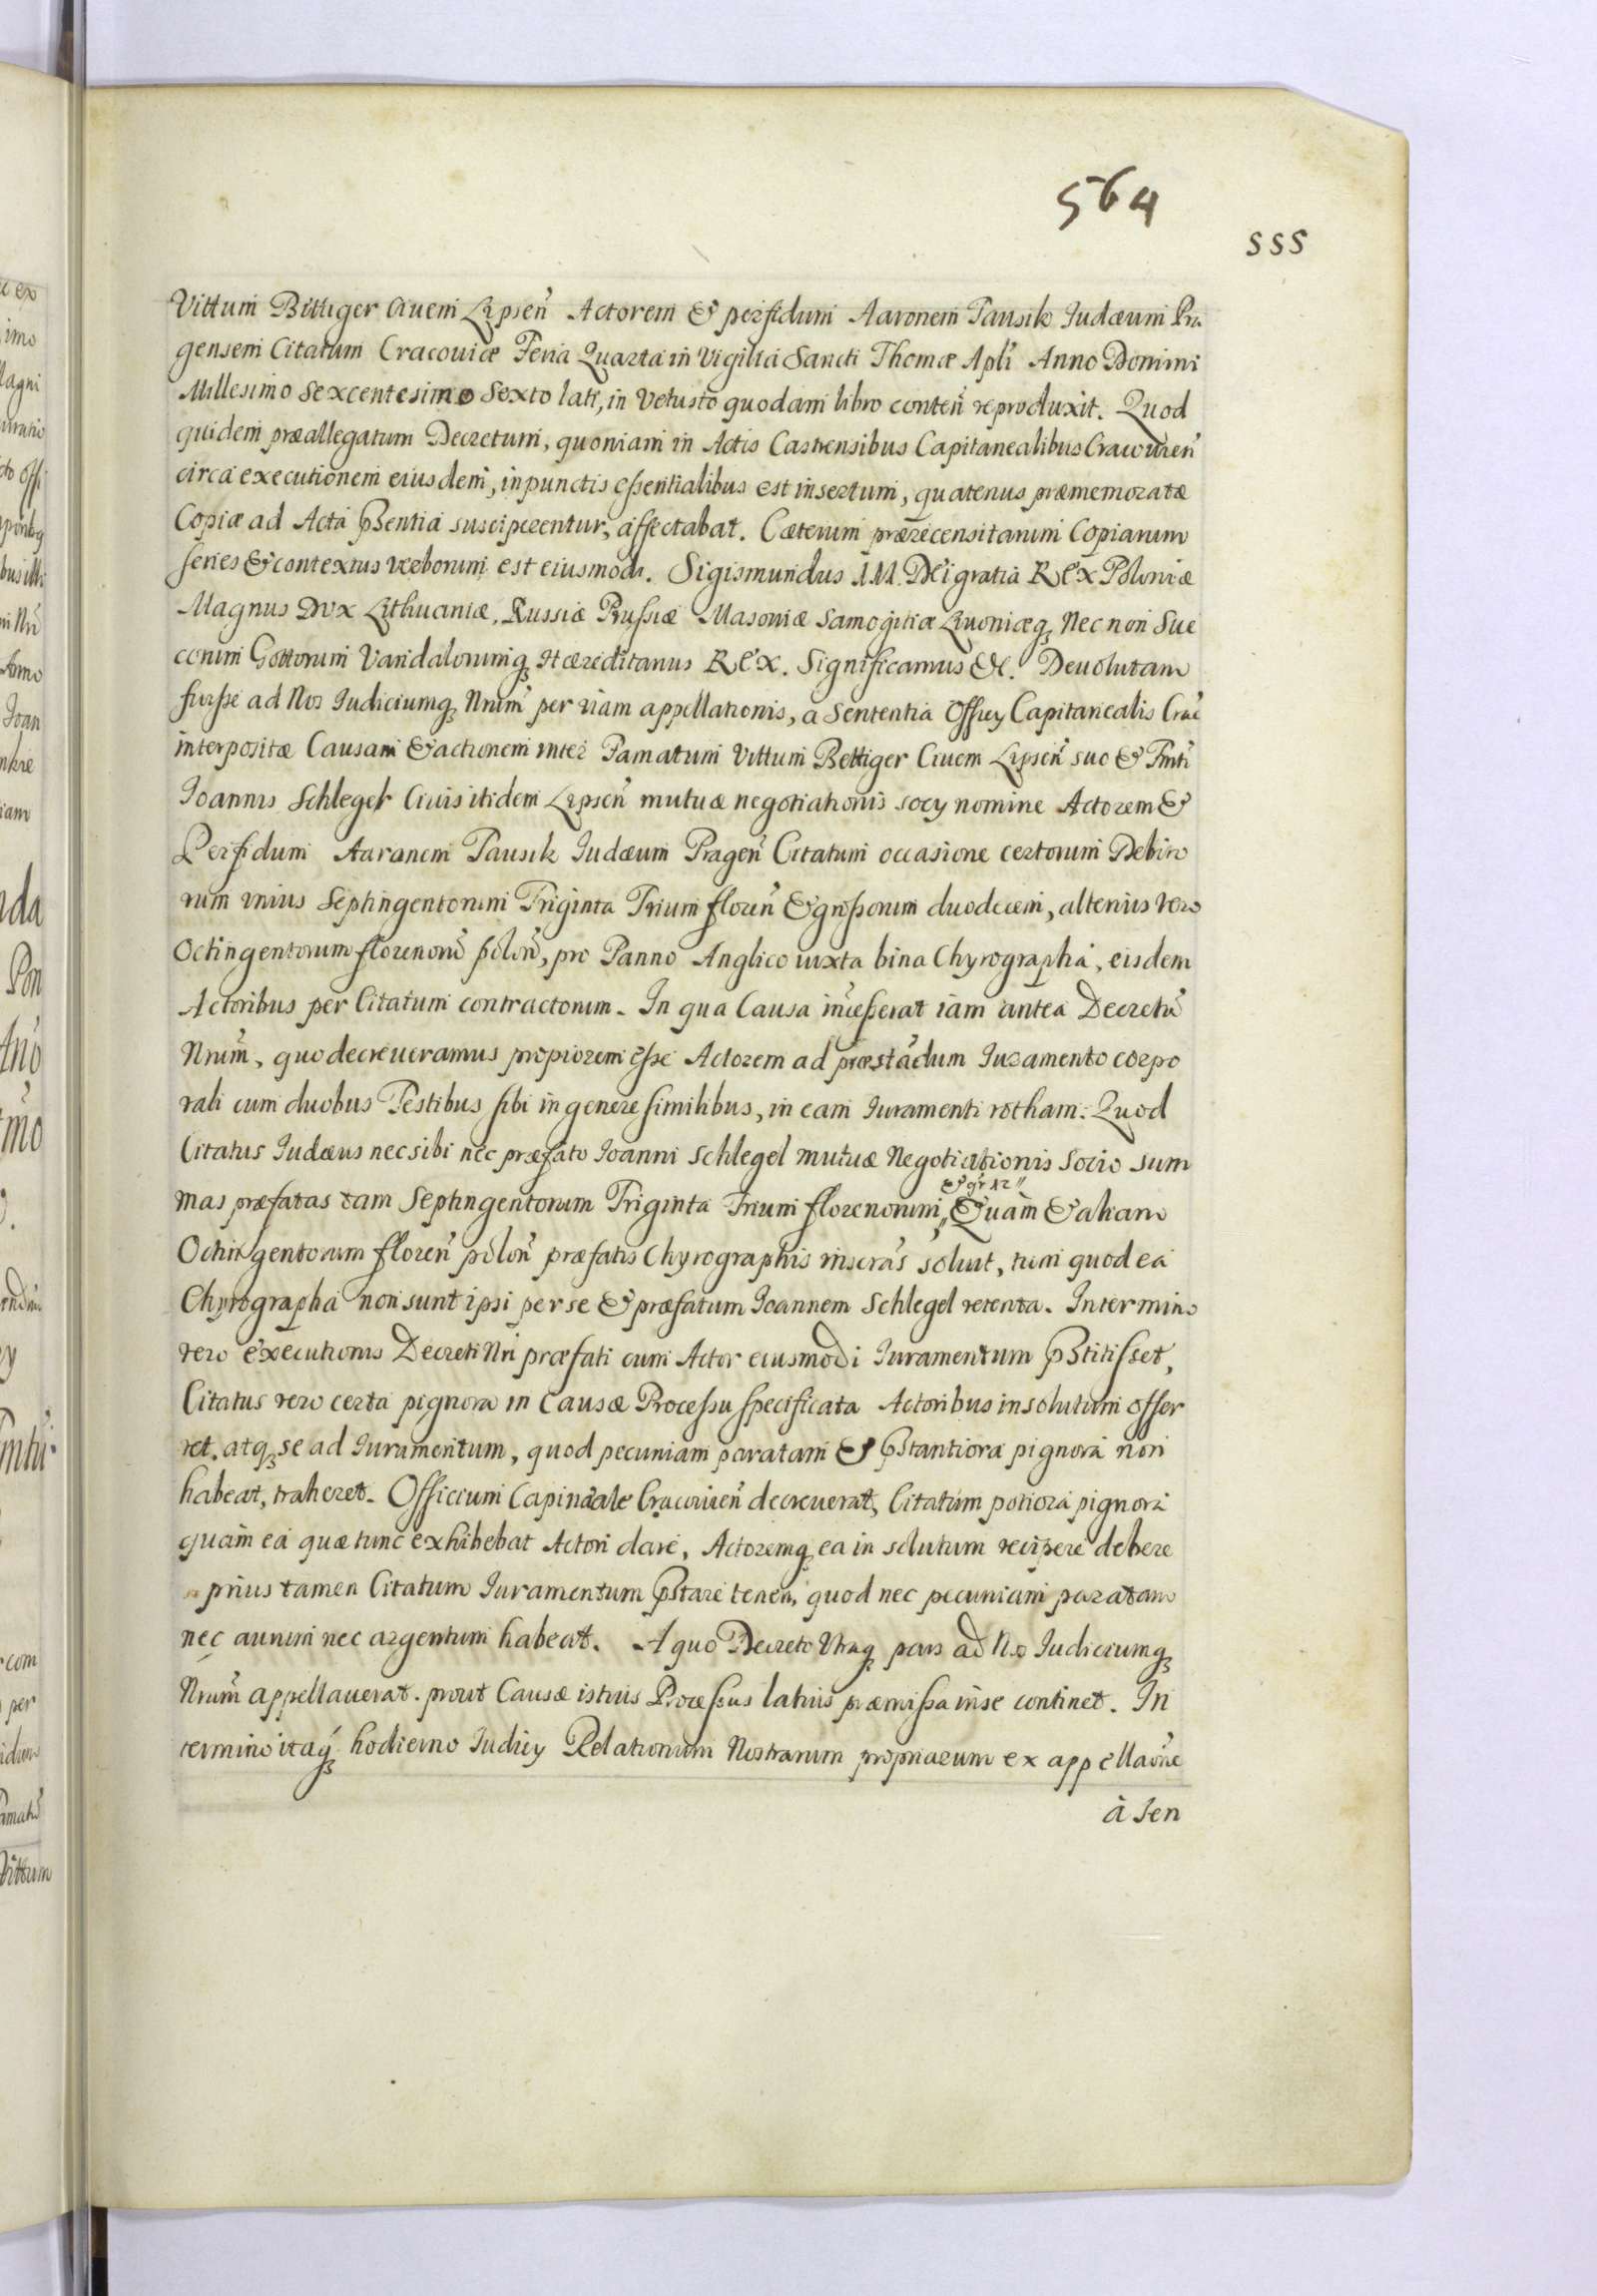 564
555
Vittum Bittiger Ciuem Lipseñ Actorem & perfidum Aaronem Pausik Iudæum Pra
gensem Citatum Cracouiæ Feria Quarta in Vigilia Sancti Thomæ Apli Anno Domini
Millesimo Sexcentesimo Sexto lati, in Vetusto quodam libro conteñ reproduxit. Quod
quidem præallegatum Decretum, quoniam in Actis Castrensibus Capitanealibus Cracouieñ
circa executionem eiusdem, in punctis essentialibus est insertum, quatenus præmemoratæ
Copiæ ad Acta p̃sentia susciperentur, affectabat. Cæterum præ recensitarum Copiarum
series & contextus verborum est eiusmodi. Sigismundus III. DEI gratia REX Poloniæ
Magnus Dux Lithuaniæ, Russiæ Prussiæ Masouiæ Samogitiæ Liuoniæq, Nec non Sue
corum Gottorum Vandalorumq Hæreditarius REX. Significamus &c. Deuolutam
fuisse ad Nos Iudiciumq, Nrum̃ per viam appellationis, a Sententia Officy Capitanealis Crac̃
interpositæ Causam & actionem inter Famatum Vittum Bettiger Ciuem Lipseñ suo & Fmti
Ioannis Schlegel Ciuis itidem Lipseñ mutuæ negotiationis socy nomine Actorem &
Perfidum Aaranem Pausik Iudæum Prageñ Citatum occasione certorum Debito
rum vnius Septingentorum Triginta Trium floreñ & grossorum duodecim, alterius vero
Octingentorum florenorũ poloñ, pro Panno Anglico iuxta bina Chyrographa, eisdem
Actoribus per Citatum contractorum. In qua Causa in̄cesserat iam antea Decretũ
Nrum̃, quo decreueramus propiorem esse Actorem ad præstãdum Iuramento corpo
rali cum duobus Testibus sibi in genere similibus, in eam Iuramenti rotham. Quod
Citatus Iudæus nec sibi nec præfato Ioanni Schlegel mutuæ Negotiationis Socio sum
mas præfatas tam Septingentorum Triginta Trium florenorum,, Quam & aliam
& gr. 12 //
Octingentorum floreñ poloñ præfatis Chyrographis inscras̃ soluit, tum quod ea
Chyrographa non sunt ipsi per se & præfatum Ioannem Schlegel retenta. In termino
vero executionis Decreti Nri præfati cum Actor eiusmodi Iuramentum p̃stitisset,
Citatus vero certa pignora in Causæ Processu specificata Actoribus in solutum offer
ret. atq, se ad Iuramentum, quod pecuniam paratam & p̃stantiora pignora non
habeat, traheret. Officium Capinẽale Cracouieñ decreuerat, Citatum potiora pignora
quam ea quæ tunc exhibebat Actori dare, Actoremq, ea in solutum recipere debere
prius tamen Citatum Iuramentum p̃stare teneri, quod nec pecuniam paratam
nec aurum nec argentum habeat. A quo Decreto Vtraq pars ad Nos Iudiciumq,
Nrum̃ appellauerat. prout Causæ istius Processus latius præmissa in se continet. In
termino itaq, hodierno Iudicy Relationum Nostrarum propriarum ex appellaõne
à Sen